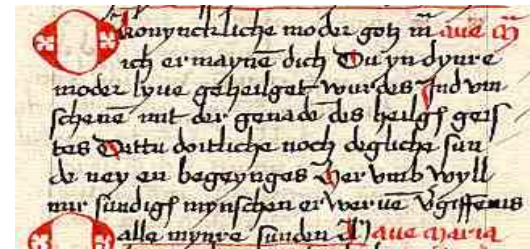 O konynckliche moder gotz m̄ aue m̄
ich ermaynē dich Du yn dynre
moder lyue geheilget wurdes Ind vm
schenē mit der genadē des heilgē geis
tes Dattu doitliche noch degliche sun
de ney en begeynges Her vmb wyll
mir sundigē mynschen erweruē v̄giffenis
alle mynre sunden Aue maria